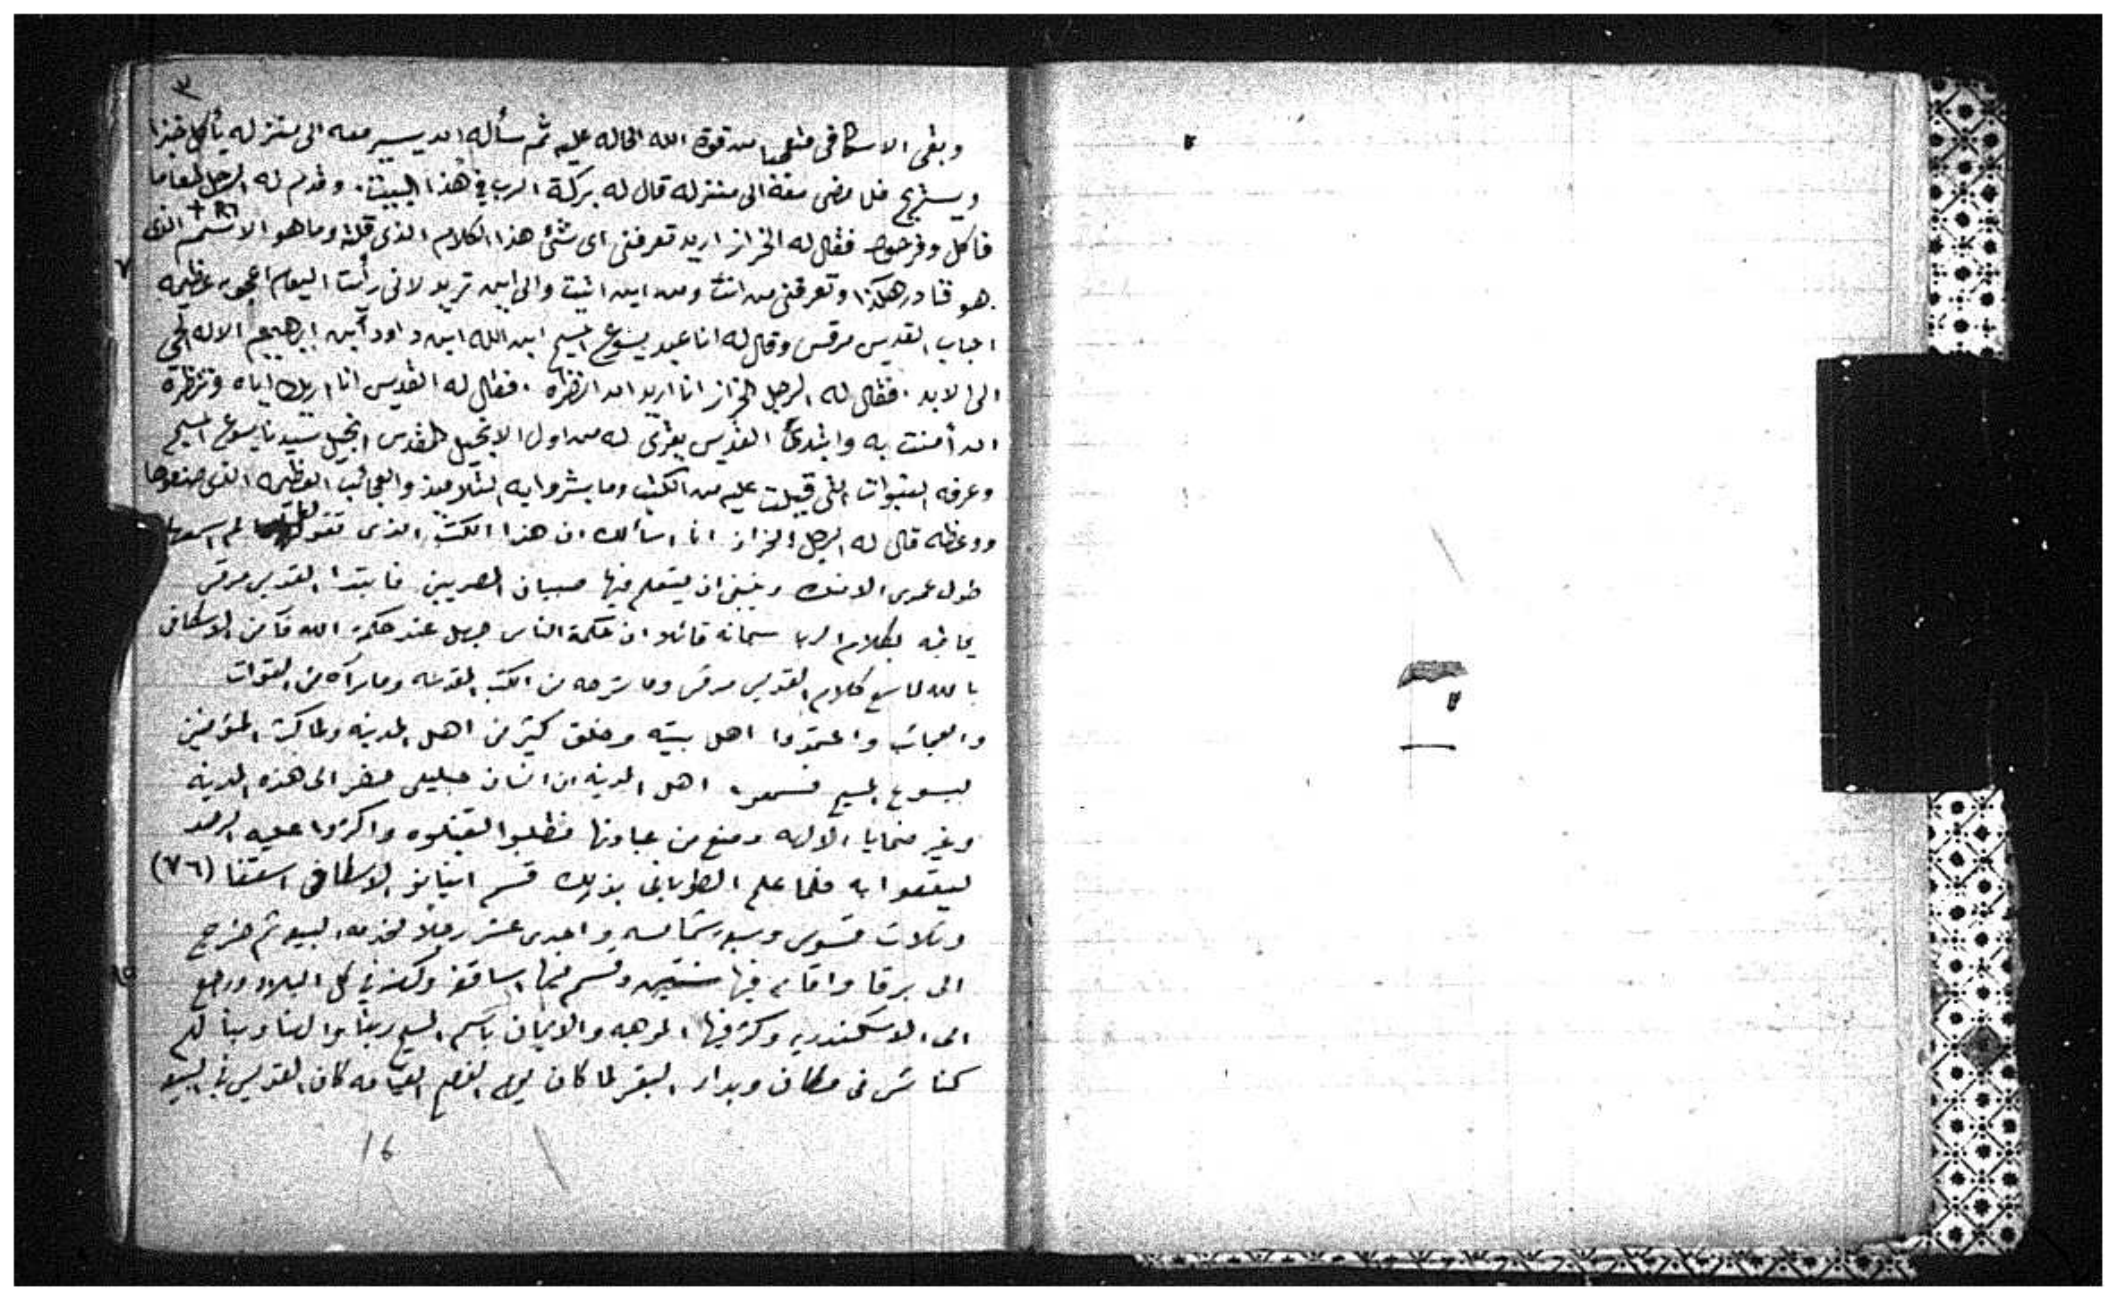 ٣
وبقى الاسكافى متعجبا من قوة الله الحاله عليه ثم سأله ان يسير معه الى منزله يأكل خبزا
ويستريح فلما مضى معه الى منزله قال له بركة الرب في هذا البيت . وقدم له الرجل طعاما
فاكل وفرحوا فقال له الخراز اريد تعرفنى اى شئ هذا الكلام الذى قلته وما هو الاسم الذى
هو قادر هكذا وتعرفنى من انت ومن اين اتيت والى اين تريد لانى رأيت اليوم اعجوبه عظيمه
اجاب القديس مرقس وقال له انا عبد يسوع المسيح ابن الله ابن داود ابن ابرهيم الاله الحى
الى الابد . فقال له الرجل الخراز انا اريد ان انظره . فقال له القديس انا اريك اياه وتنظرة
ان أمنت به وابتدئ القديس يقرى له من اول الانجيل المقدس انجيل سيدنا يسوع المسيح
وعرفه النبوات التى قيلت عليه من الكتب وما بشروا به التلاميذ والعجائب العظيمه الذى صنعوها
ووعظه قال له الرجل الخراز انا اسألك ان هذا الكتب الذى تقولها لم اسمعها
طول عمرى الا منك وينبغى ان يتعلم فيها صبيان المصريين فابتدا القديس مرقس
يخاطبه بكلام الرب سبحانه قائلا ان حكمة الناس جهل عند حكمة الله فآمن الاسكافى
بالله لما سمع كلام القديس مرقس وما شرحه من الكتب المقدسه وما رآه من القوات
والعجائب واعتمدوا اهل بيته وخلق كثير من اهل المدينه ولما كثر المؤمنين
بيسوع المسيح فسمعوا اهل المدينه ان انسان جليلى حضر الى هذه المدينه
وغير ضحايا الالهه ومنع من عبادتها فطلبوا ليقتلوه واكثروا عليه الرصد
ليقعوا به فلما علم الطوبانى بذلك قسم انيانو الاسكافى اسقفا (٧٦)
وثلاث قسوس وسبعة شمامسه واحدى عشر رجلا لخدمه البيعه ثم خرج
الى برقا واقام فيها سنتين وقسم فيها اساقفه وكهنه في كل البلاد ورجع
الى الاسكندريه وكثر فيها الموهبه والايمان باسم المسيح ربنا والهنا وبنا لهم
كنائس فى مكان وبدار البقر لما كان يوم الفصح القيامه كان القديس في البيعه
16